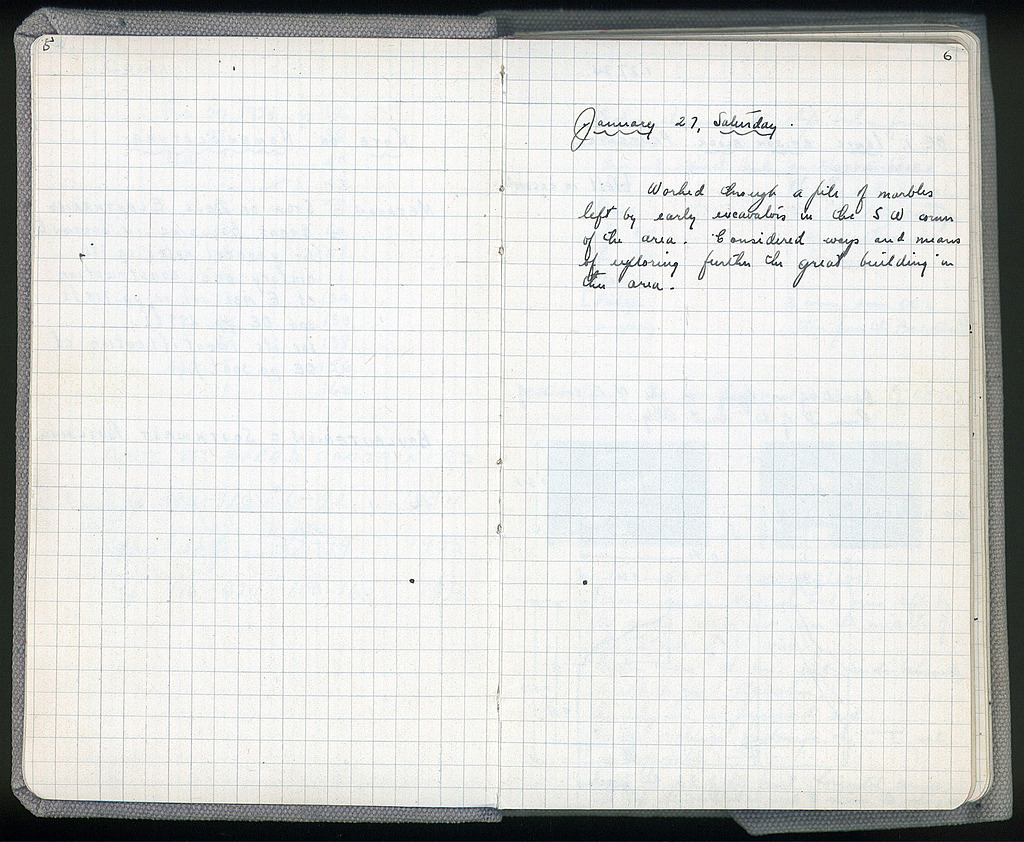 5
6
January 27, Saturday.
Worked through a pile of marbles
left by early excavators in the SW corner
of the area. Considered ways and means
of exploring further the great building in
this area.